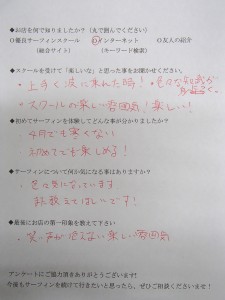 ◆お店を何で知りましたか?(丸で囲んでください)
○優良サーフィンスクール ○インターネット ○友人の紹介
(総合サイト) (キーワード検索)
◆スクールを受けて「楽しいな」と思った事をお聞かせください。
・上手く波に乗れた時! ・色々な知識が
・スクールの楽しい雰囲気!楽しい!
◆初めてサーフィンを体験してどんな事が分かりましたか?
4月でも寒くない
初めてでも楽しめる!
◆サーフィンについて何か気になる事はありますか?
・色々気になっています
ほしいです!
◆最後にお店の第一印象を教えて下さい
・笑い声が絶えない楽しい雰囲気
アンケートにご協力頂きありがとうございます!
今後もサーフィンを続けて行きたいと思ったら、ぜひご相談くださいませ!